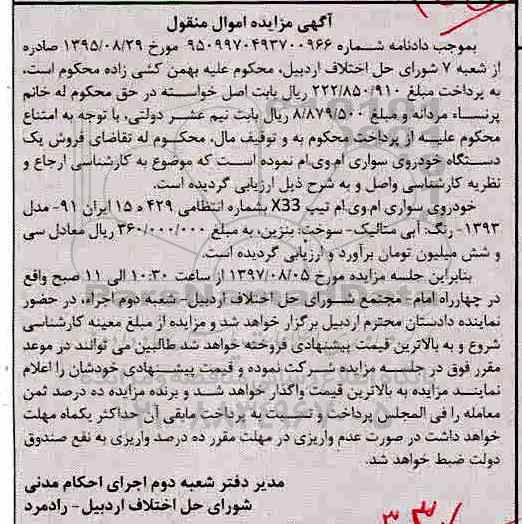 آگهی مزایده اموال منقول
بموجب دادنامه شماره ۹۵۰۹۹۷۰۴۹۳۷۰۰۹۶۶ مورخ ۱۳۹۵/۰۸/۲۹ صادره
از شعبه ۷ شورای حل اختلاف اردبیل، محکوم علیه بهمن کشی زاده محکوم است،
به پرداخت مبلغ ۲۲۲/۸۵۰/۹۱۰ ریال بابت اصل خواسته در حق محکوم له خانم
پرنساء مردانه و مبلغ ۸/۸۷۹/۵۰۰ ریال بابت نیم عشر دولتی، با توجه به امتناع
محکوم علیه از پرداخت محکوم به و توقیف مال، محکوم له تقاضای فروش یک
دستگاه خودروی سواری ام.وی.ام نموده است که موضوع به کارشناسی ارجاع و
نظریه کارشناسی واصل و به شرح ذیل ارزیابی گردیده است.
خودروی سواری ام.وی.ام تیپ X33 بشماره انتظامی ۴۲۹ ه ۱۵ ایران ۹۱- مدل
۱۳۹۳- رنگ: آبی متالیک- سوخت: بنزین، به مبلغ ۳۶۰/۰۰۰/۰۰۰ ریال معادل سی
و شش میلیون تومان برآورد و ارزیابی گردیده است.
بنابراین جلسه مزایده مورخ ۱۳۹۷/۰۸/۰۵ از ساعت ۱۰:۳۰ الی ۱۱ صبح واقع
در چهارراه امام- مجتمع شورای حل اختلاف اردبیل- شعبه دوم اجراء، در حضور
نماینده دادستان محترم اردبیل برگزار خواهد شد و مزایده از مبلغ معینه کارشناسی
شروع و به بالاترین قیمت پیشنهادی فروخته خواهد شد طالبین می توانند در موعد
مقرر فوق در جلسه مزایده شرکت نموده و قیمت پیشنهادی خودشان را اعلام
نمایند مزایده به بالاترین قیمت واگذار خواهد شد و برنده مزایده ده درصد ثمن
معامله را فی المجلس پرداخت و نسبت به پرداخت مابقی آن حداکثر یکماه مهلت
خواهد داشت در صورت عدم واریزی در مهلت مقرر ده درصد واریزی به نفع صندوق
دولت ضبط خواهد شد.
مدیر دفتر شعبه دوم اجرای احکام مدنی
شورای حل اختلاف اردبیل- رادمرد